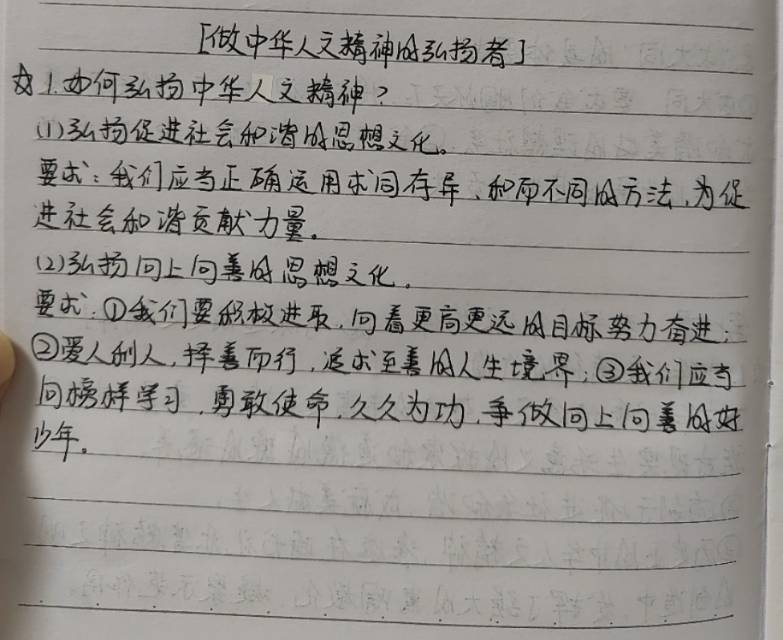 [做中华人文精神的弘扬者]
☆1.如何弘扬中华人文精神?
(1)弘扬促进社会和谐的思想文化。
要求:我们应当正确运用求同存异、和而不同的方法,为促
进社会和谐贡献力量。
(2)弘扬向上向善的思想文化。
要求:①我们要积极进取,向着更高更远的目标努力奋进;
②爱人利人,择善而行,追求至善的人生境界;③我们应当
向榜样学习,勇敢使命,久久为功,争做向上向善的好
少年。